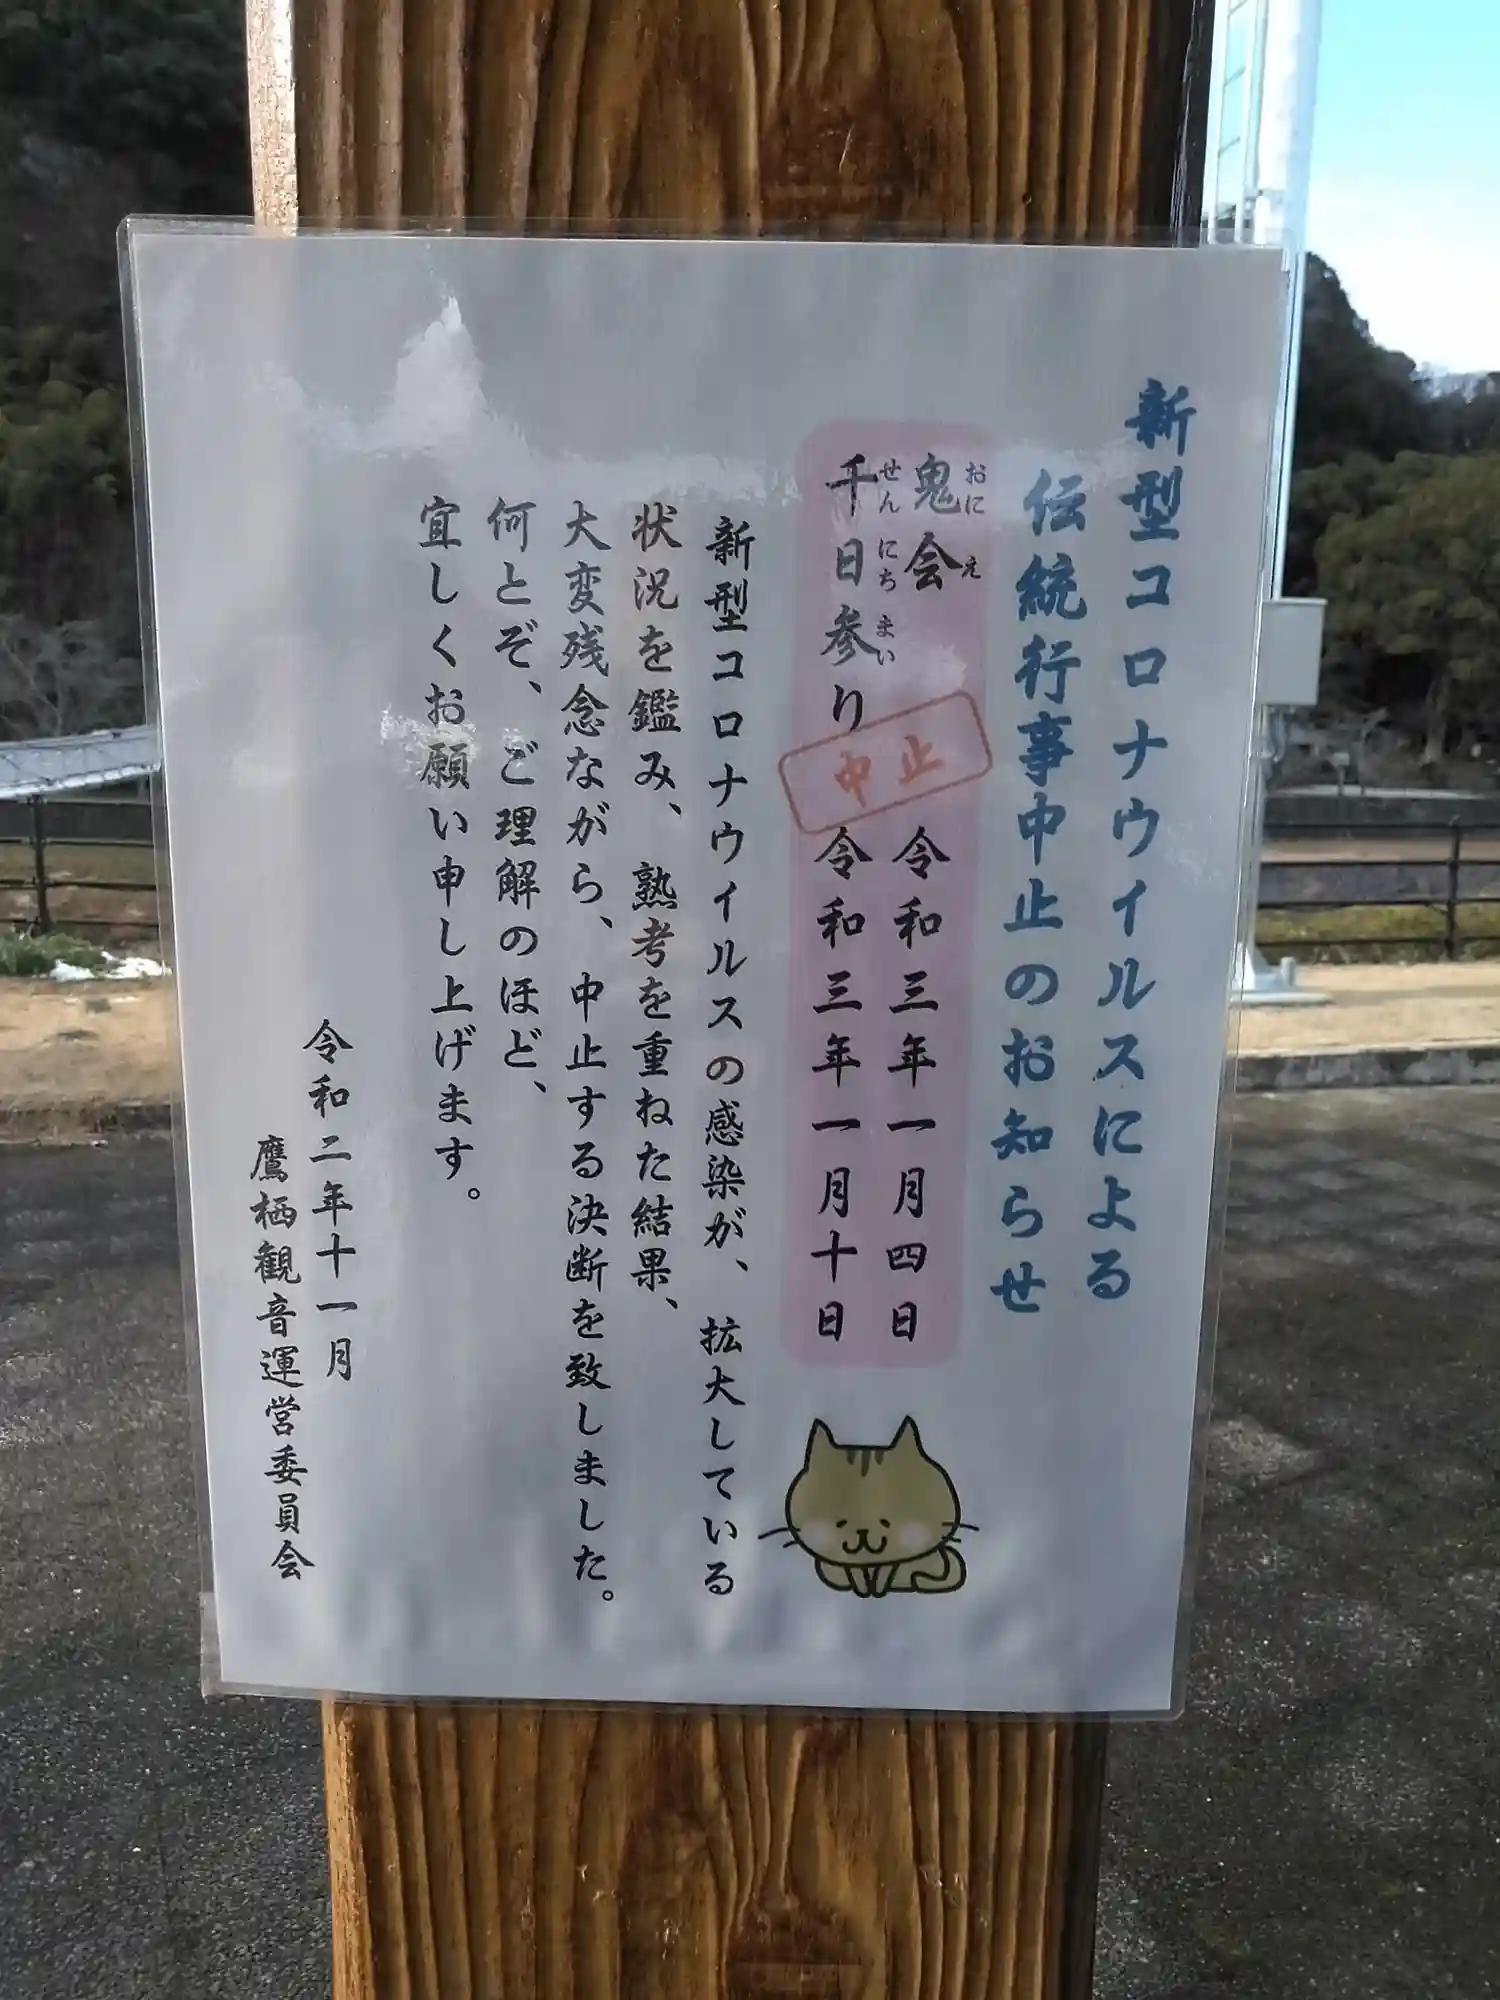 新型コロナウイルスによる
伝統行事中止のお知らせ
鬼会 令和三年一月四日
おに え
千日参り 令和三年一月十日
せんにちまい
中止
新型コロナウイルスの感染が、拡大している
状況を鑑み、熟考を重ねた結果、
大変残念ながら、中止する決断を致しました。
何とぞ、ご理解のほど、
宜しくお願い申し上げます。
令和二年十一月
鷹栖観音運営委員会